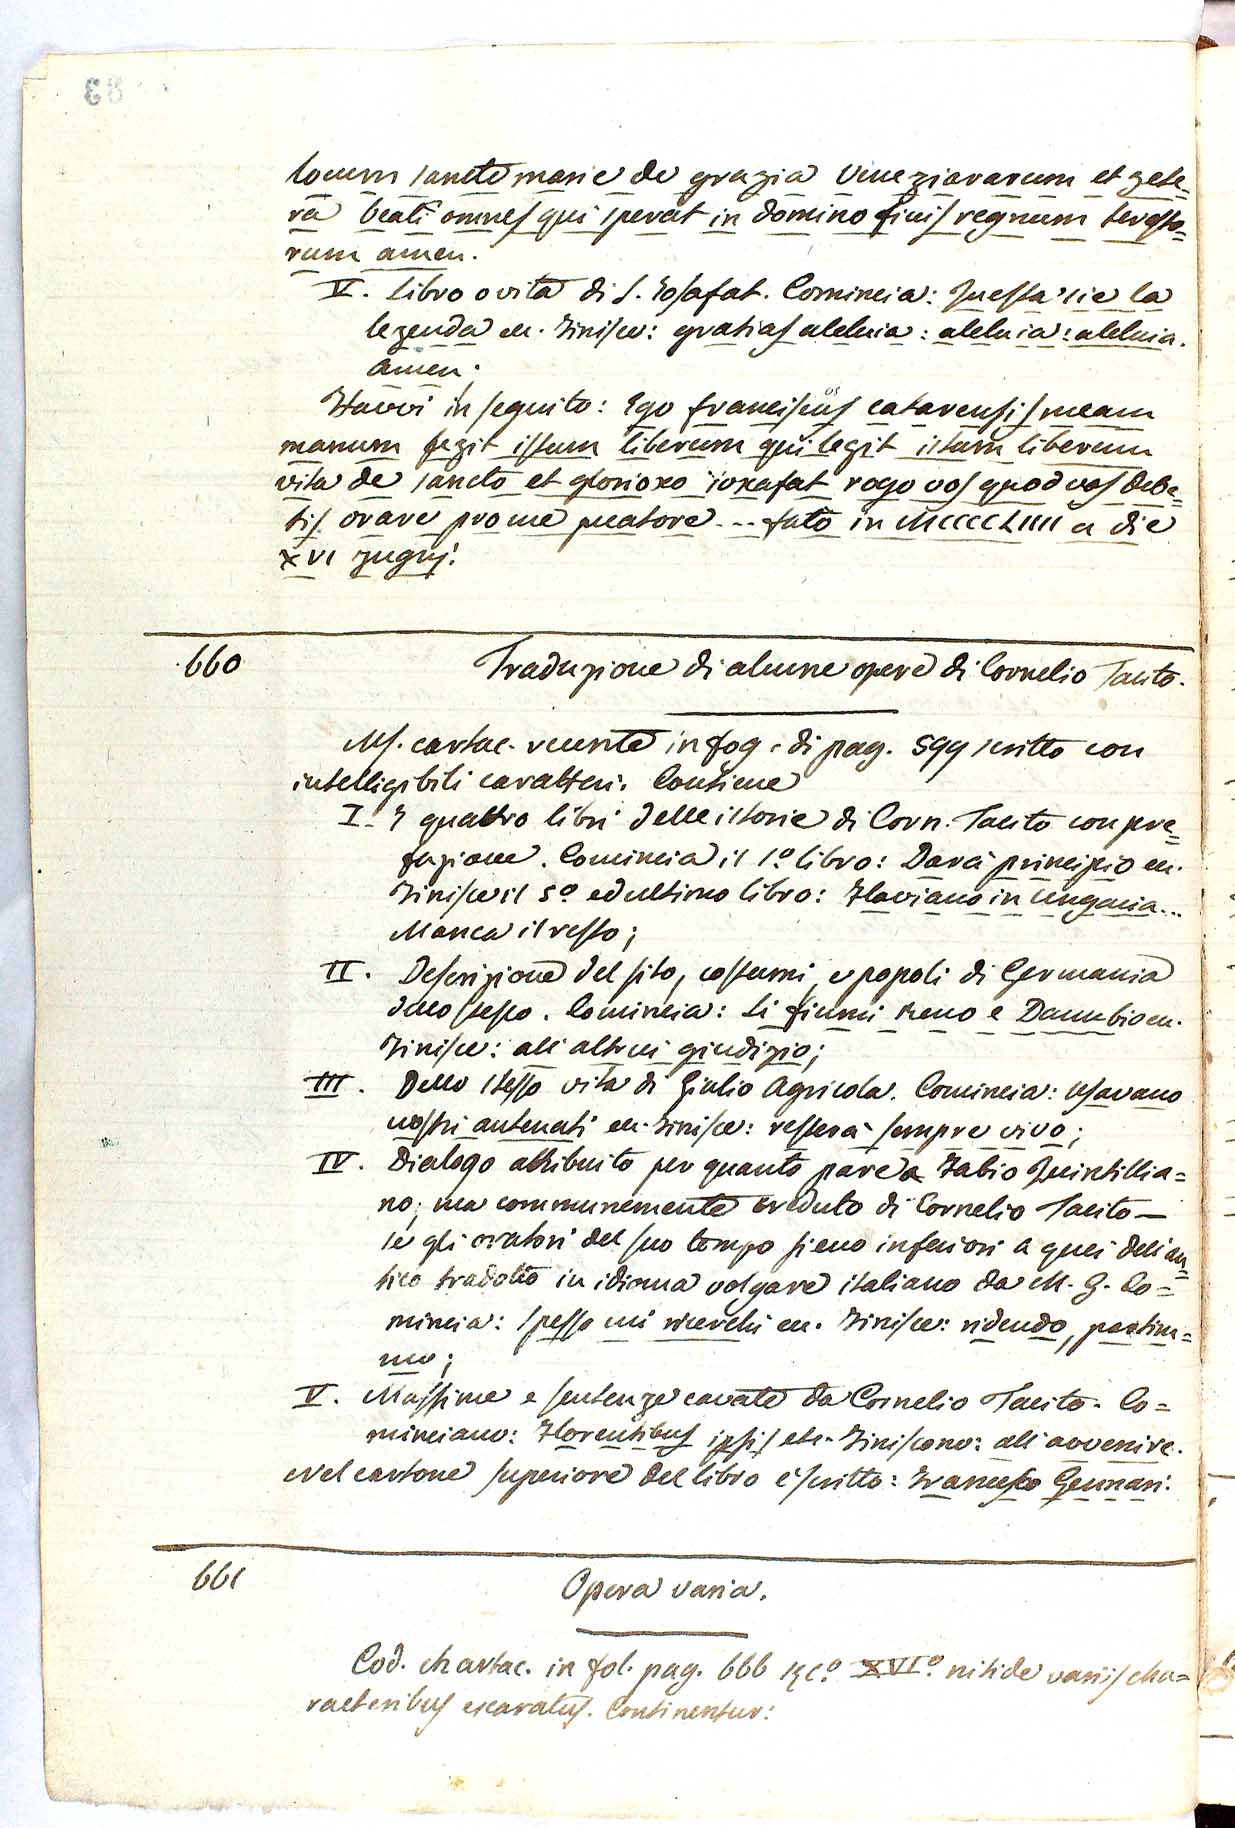 locum sancte marie de grazia Veneziararum et zete=
ra beati omnes qui sperat in domino finis regnum
rum amen.
V. Libro o vita di S. Josafat. Comincia: Questa sie la
legenda ec. Finisce: gratias aleluia: aleluia: aleluia.
amen.
Havvi in seguito: Ego franciscus catarensis meam
manum fezit istum liberum qui legit istum liberum
vita de sancto et glorioxo ioxafat rogo vos quod vos debe=
tis orare pro me pecatore... fato in MCCCCLIIII a die
XVI zugnj.
660
Traduzione di alcune opere di Cornelio Tacito.
Ms. cartac. recente in fog. di pag. 599 scritto con
intelligibili caratteri. Contiene
I. I quattro libri delle istorie di Corn. Tacito con pre=
fazione. Comincia il 1º libro: Darà principio ec.
Finisce il 5º ed ultimo libro: Flaviano in Ungaria...
Manca il resto;
II. Descrizione del sito, costumi, e popoli di Germania
dello stesso. Comincia: Li fiumi Reno e Danubio ec.
Finisce: all'altrui giudizio;
III. Dello stesso vita di Giulio Agricola. Comincia: Usavano
nostri antenati ec. Finisce: resterà sempre vivo;
IV. Dialogo attribuito per quanto pare a Fabio Quintillia=
no; ma communemente creduto di Cornelio Tacito—
se gli oratori del suo tempo sieno inferiori a quei dell'an=
tico tradotto in idioma volgare italiano da M. G. Co=
mincia: Spesso mi ricerchi ec. Finisce: ridendo, partim=
mo;
V. Massime e sentenze cavate da Cornelio Tacito. Co=
minciano: Florentibus ipsis etc. Finiscono: all'avvenire.
Nel cartone superiore del libro è scritto: Francesco Gennari.
661
Opera varia.
Cod. chartac. in fol. pag. 666 XVIº. nitide variis cha=
racteribus exaratus. Continentur: